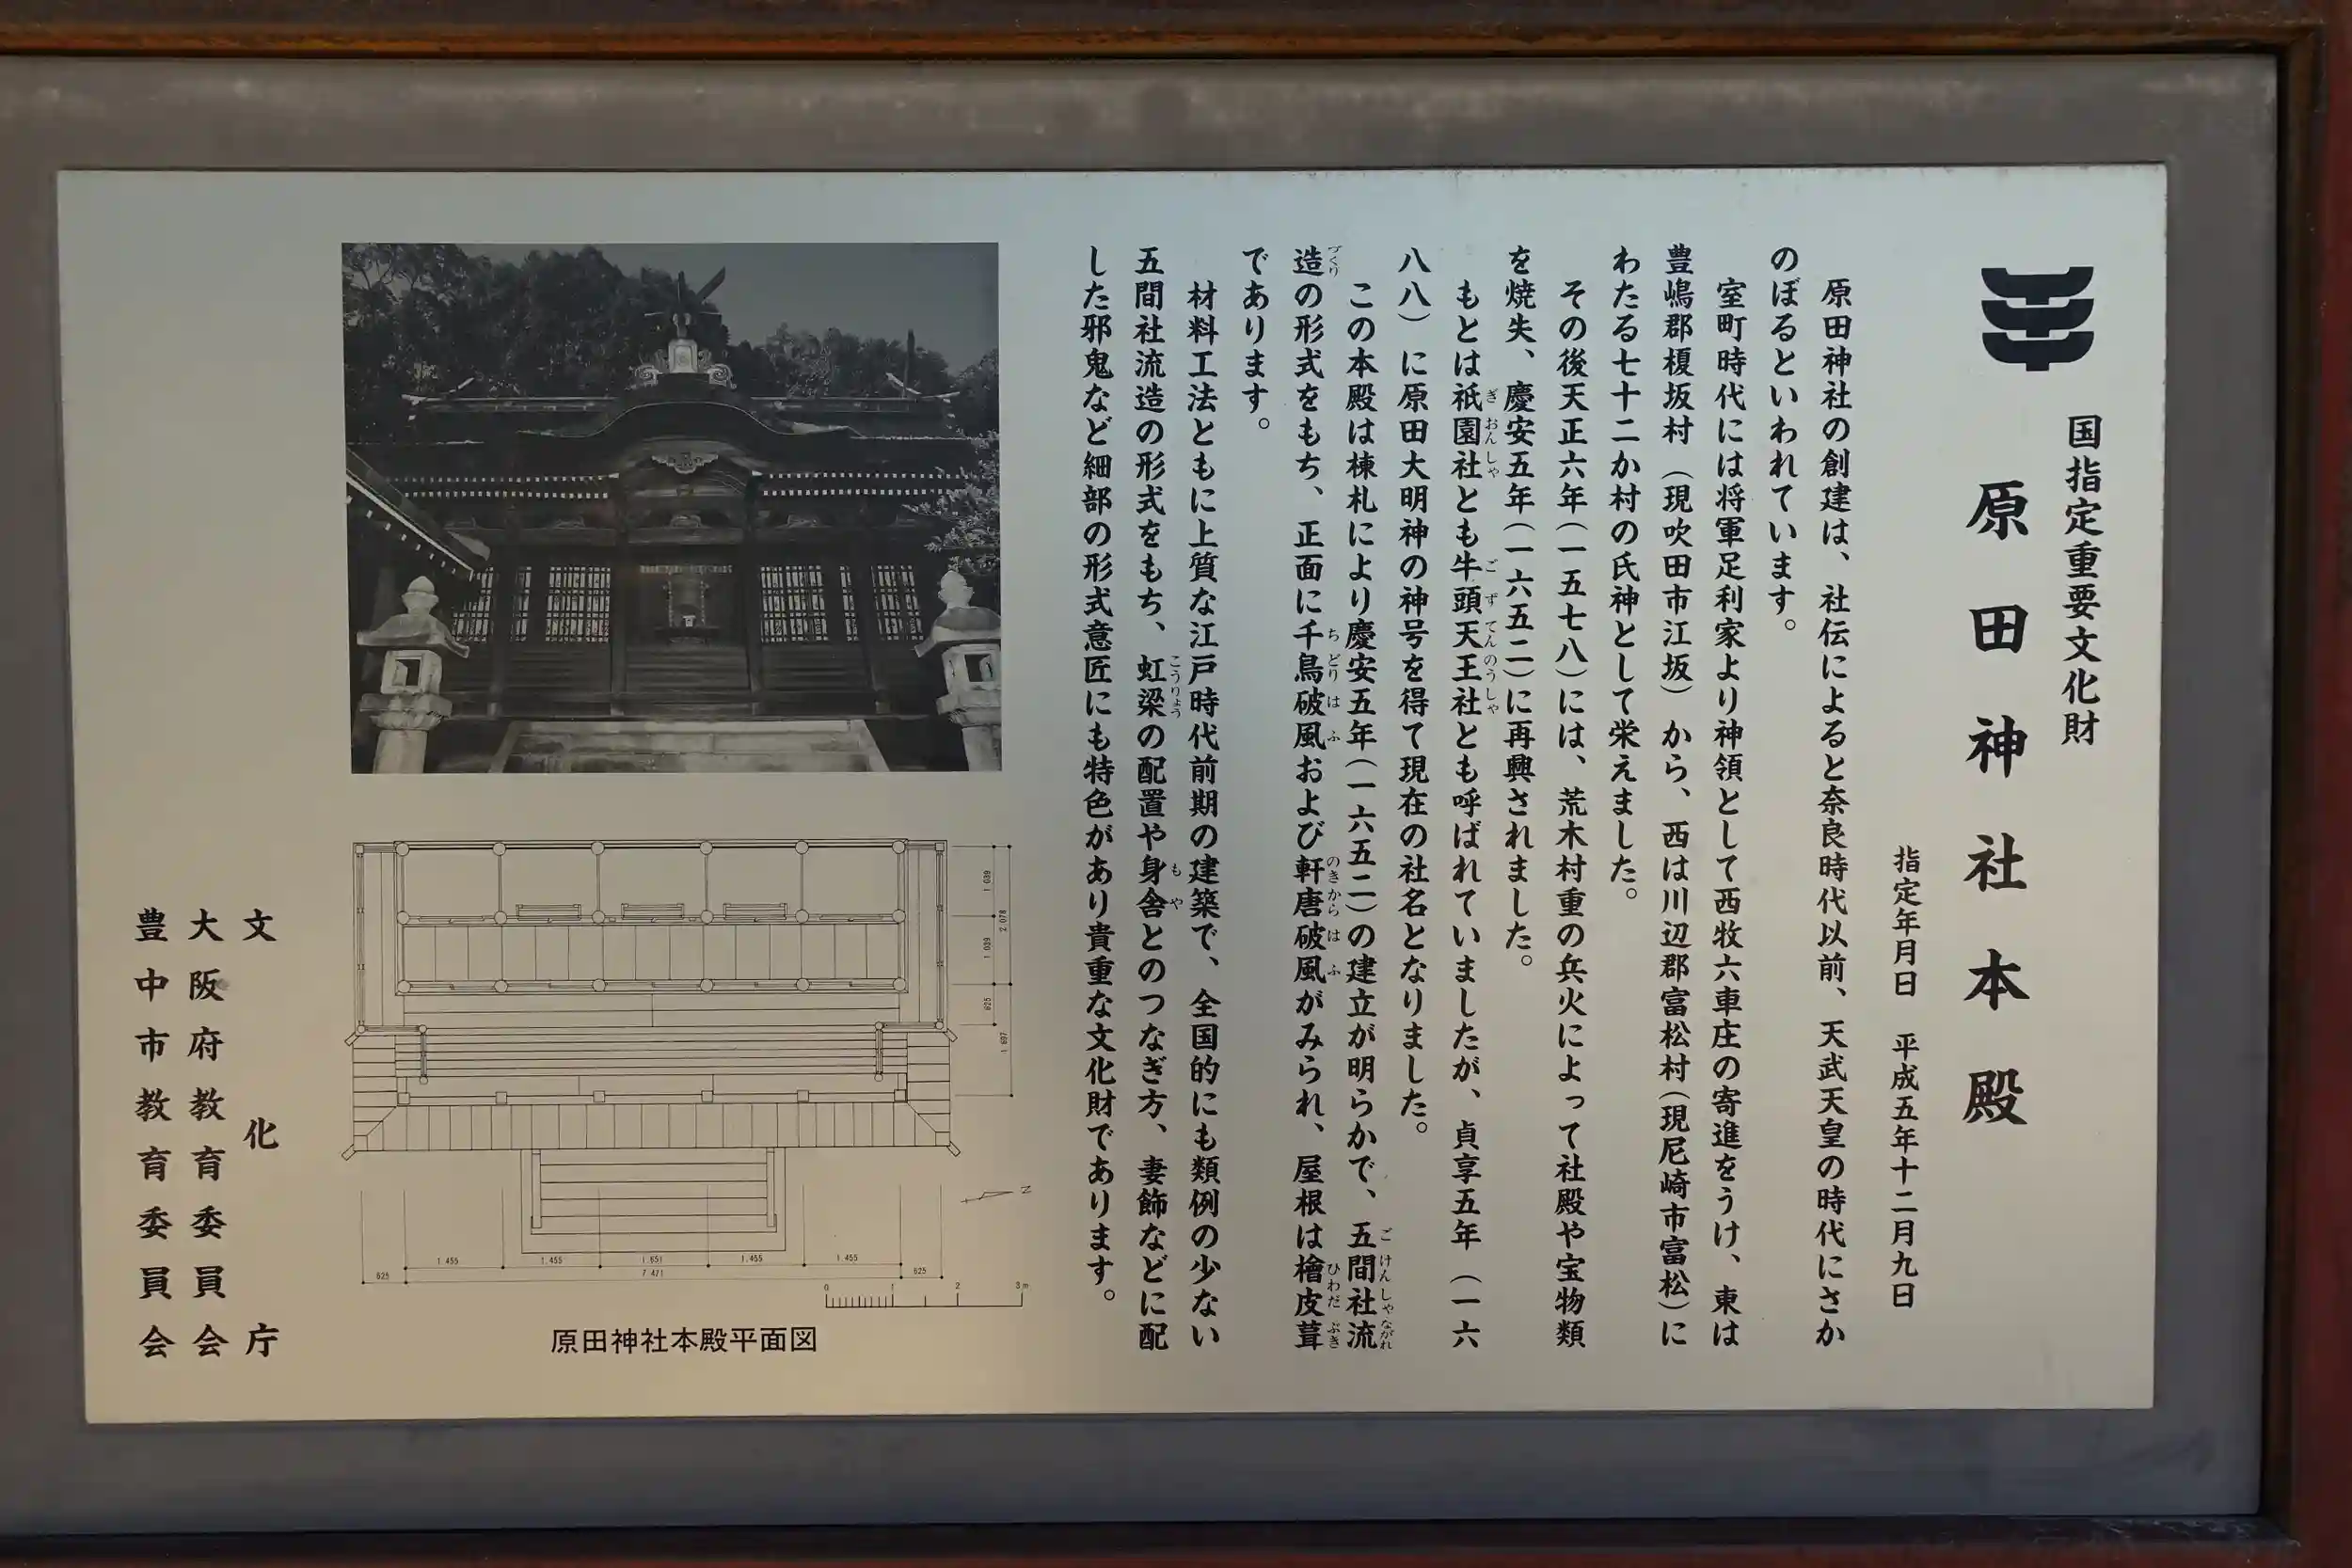 国指定重要文化財
原田神社本殿
指定年月日 平成五年十二月九日
原田神社の創建は、社伝によると奈良時代以前、天武天皇の時代にさか
のぼるといわれています。
室町時代には将軍足利家より神領として西牧六車庄の寄進をうけ、東は
豊嶋郡榎坂村（現吹田市江坂）から、西は川辺郡富松村（現尼崎市富松）に
わたる七十二か村の氏神として栄えました。
その後天正六年（一五七八）には、荒木村重の兵火によって社殿や宝物類
を焼失、慶安五年（一六五二）に再興されました。
もとは祇園社とも牛頭天王社とも呼ばれていましたが、貞享五年（一六
八八）に原田大明神の神号を得て現在の社名となりました。
この本殿は棟札により慶安五年（一六五二）の建立が明らかで、五間社流
造の形式をもち、正面に千鳥破風および軒唐破風がみられ、屋根は檜皮葺
であります。
材料工法ともに上質な江戸時代前期の建築で、全国的にも類例の少ない
五間社流造の形式をもち、虹梁の配置や身舎とのつなぎ方、妻飾などに配
した邪鬼など細部の形式意匠にも特色があり貴重な文化財であります。
1.039
1.039
2.078
625
1.697
N
1.455
1.455
1.651
1.455
1.455
625
7.471
625
0 1 2 3m
原田神社本殿平面図
文化庁
大阪府教育委員会
豊中市教育委員会